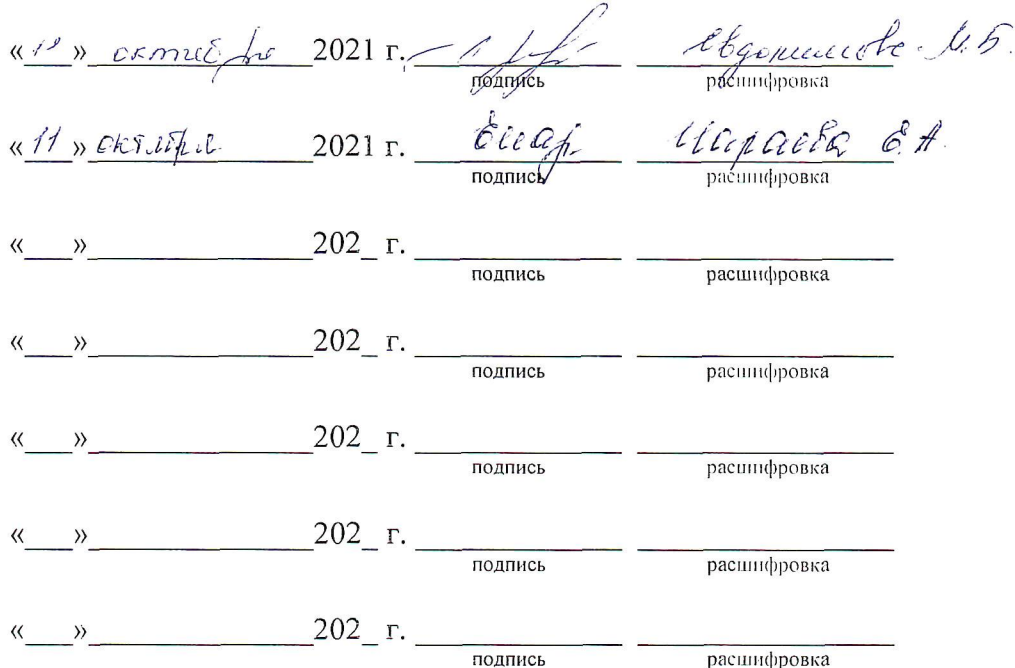 « » октября 2021 г. Евдокимова М.Б.
подпись расшифровка
«11» октября 2021 г. Е.А.
подпись расшифровка
«___»_______________202_ г. ______________ _________________
подпись расшифровка
«___»_______________202_ г. ______________ _________________
подпись расшифровка
«___»_______________202_ г. ______________ _________________
подпись расшифровка
«___»_______________202_ г. ______________ _________________
подпись расшифровка
«___»_______________202_ г. ______________ _________________
подпись расшифровка